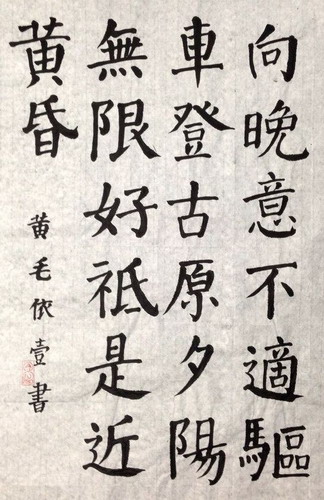 向晚意不適驅
車登古原夕陽
無限好祗是近
黃昏
黃毛依壹書